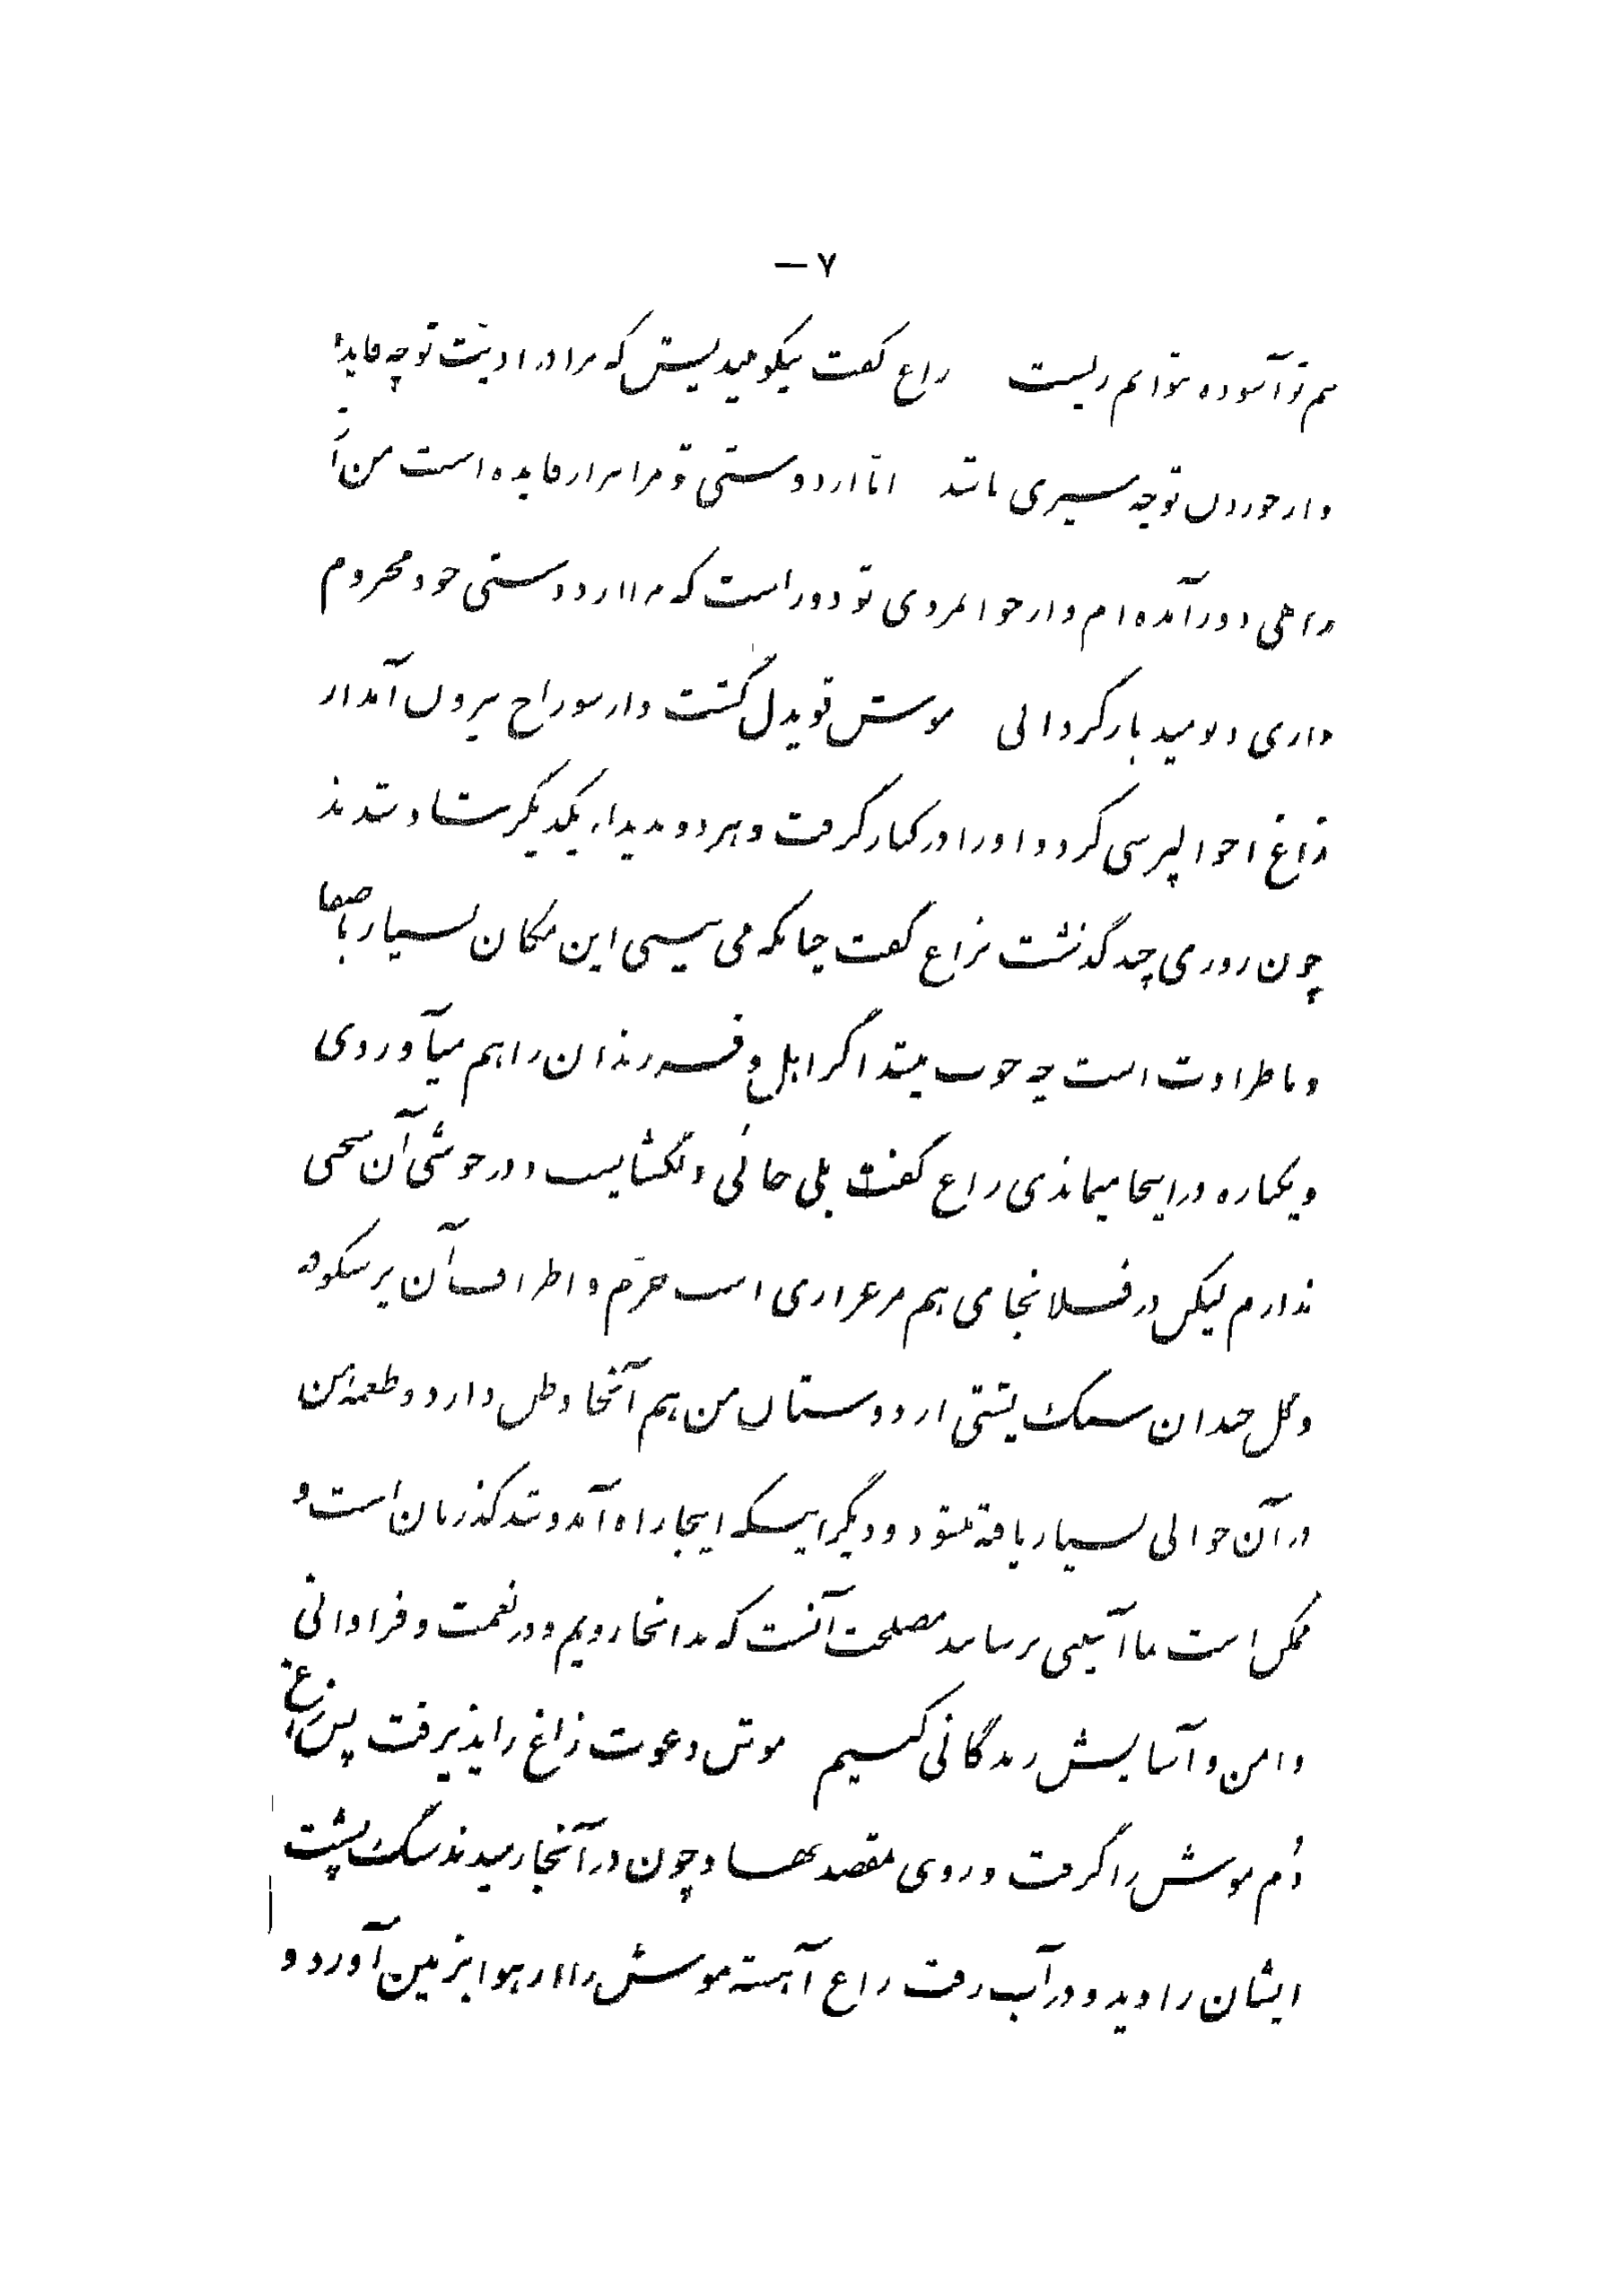 ۷ —
هم تو آسوده نتوانم زیست زاغ گفت نیکو میندیش که مرا در اذیت تو چه فایدهٔ
و از خوردن تو چه سیری باشد اما از دوستی تو مرا هزار فایده است من از
راهی دور آمده‌ام و از جوانمردی تو دور است که مرا از دوستی خود محروم
داری و نومید بازگردانی موش قویدل گشت و از سوراخ بیرون آمد از
زاغ احوالپرسی کرد و او را در کنار گرفت و هر دو بدیدار یکدیگر شاد شدند
چون روزی چند گذشت بزاغ گفت چنانکه می بینی این مکان بسیار با صفا
و با طراوت است چه خوب میشد اگر اهل و فرزندان را هم میآوردی
و یکباره در اینجا میماندی زاغ گفت بلی جائی دلگشایست و در خوشی آن سخنی
ندارم لیکن در فلانجا می هم مرغزاری است خرّم و اطراف آن پر شکوفه
و گل خندان سنگ پشتی از دوستان من هم آنجا وطن دارد و طعمهٔ من
در آن حوالی بسیار یافته میشود و دیگر اینکه اینجا راه آمد و شد گذریان است و
ممکن است بما آسیبی برسانند مصلحت آنست که بدانجا رویم و در نعمت و فراوانی
و امن و آسایش زندگانی کنیم موش دعوت زاغ را پذیرفت پس زاغ
دُم موش را گرفت و روی بمقصد نهاد و چون در آنجا رسیدند سنگ پشت
ایشان را دید و در آب رفت زاغ آهسته موش را از هوا بزمین آورد و